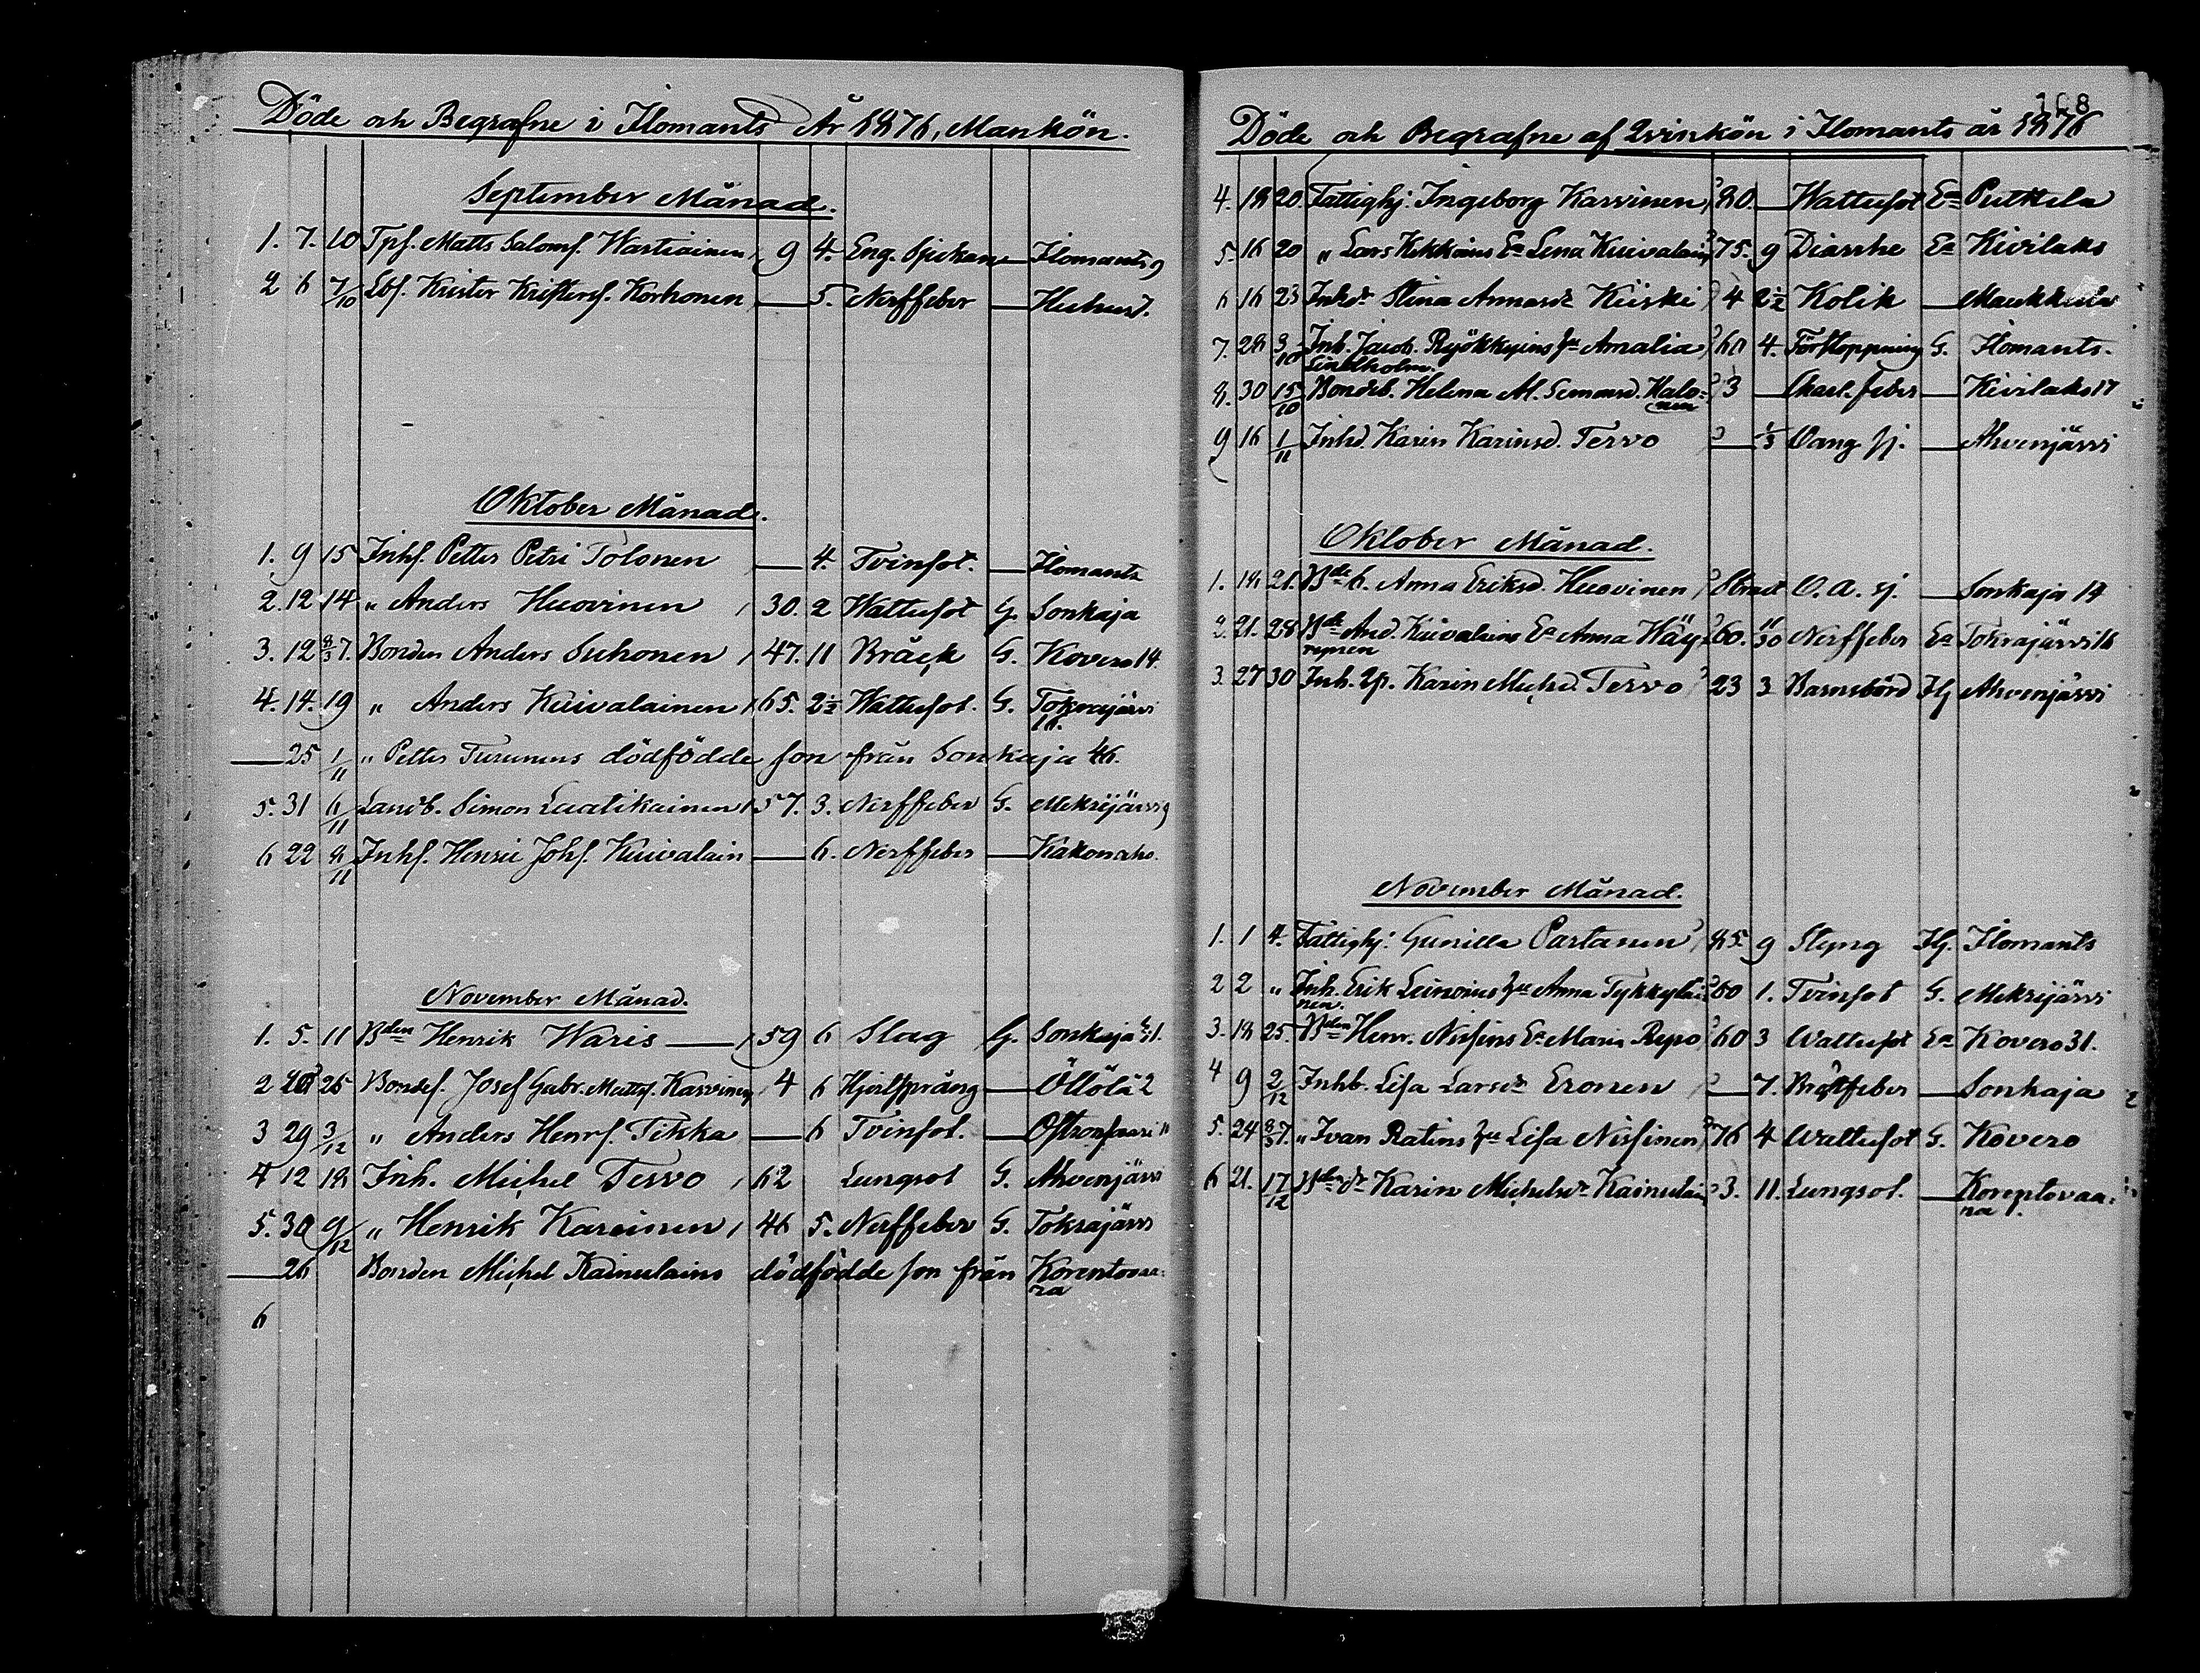 Döde och Begrafne i Ilomants År 1876, Mankön.
September Månad.
1. 7. 10 Tpf. Matts Salomf. Wartiainen 9 4. Eng. Sjukan — Ilomants 9
2 6 7/10 Lbf. Krister Kristersf. Korhonen — 5. Nerffeber — Huhus 1.
Oktober Månad.
1. 9 15 Inhf. Petter Petri Tolonen — 4 Tvinsot. — Ilomants
2. 12 14 " Anders Huovinen 30. 2 Wattusot G. Sonkaja
3. 12 8/3 7. Bonden Anders Suhonen 47. 11 Bråck G. Kovero 14.
4. 14. 19 " Anders Kuivalainen 65. 2½ Wattusot. G. Tokrajärvi
16.
— 25 1/11 " Petter Turunens dödfödde son från Sonkaja 46.
5. 31 6/11 Landb. Simon Luatikainen 57. 3. Nerffeber G. Mekrijärvi 9
6 22 8/11 Inhf. Henric Johf. Kuivalain — 6. Nerffeber — Kakonaho.
November Månad.
1. 5. 11 Bden Henrik Waris — 59 6 Slag G. Sonkaja 51.
2 20 25 Bondef. Josef Gabr. Mattsf. Karvinen 4 6 Hjertsprång — Öllölä 2
3 29 3/12 " Anders Henrf. Tikka — 6 Tvinsot. — Oskronsaari
4 12 18 Inh. Michel Tervo 62 Lungsot G. Ahvenjärvi
5. 30 9/12 " Henrik Karvinen 46 5. Nerffeber G. Tokrajärvi
— 26 Bonden Michel Kainulains dödfödde son från Korentovaa:
ra
6
108
Döde och Begrafne af Qvinkön i Ilomants år 1876
4. 18 20. Fattighj. Ingeborg Karvinen 80. — Wattusot Ea Putkela
5. 16 20 " Lars Kekkoins Ea Lena Kuivalain 75. 9 Diarrhe Ea Kivilaks
6 16 23 Inhdr Stina Annasdr Kiiski 4 2½ Kolik — Maukkula
7. 28 3/10 Inh. Jacob. Ryökkyins hu Amalia 60 4. Förstoppning G. Ilomants.
Lindholm.
8. 30 15/10 Bondeb. Helena M. Simonsd. Halo= 3 — Skarl. feber — Kivilaks 17
nen
9 16 1/11 Inhd. Karin Karinsd. Tervo — 1/3 Oang. sj. — Ahvenjärvi
Oktober Månad.
1. 18 21. Bde b. Anna Eriksd. Huovinen Straxt O. A. sj. — Sonkaja 14
2. 21. 28 Bde And. Kuivalains Ea Anna Wäy= 60. 11/30 Nerffeber Ea Tokrajärvi 16
rynen
3. 27 30 Inh. Qp. Karin Michsd. Tervo 23 3 Barnsbörd Hg Ahvenjärvi
November Månad.
1. 1 4. Fattighj. Gunilla Partanen 85. 9 Styng Hg. Ilomants
2 2 " Inh. Erik Leinoins hu Anna Tykkyläi= 60 1. Tvinsot G. Mekrijärvi
nen.
3. 18 25. Bden Henr. Nisfins Ea Maria Repo 60 3 Wattusot Ea Kovero 31.
4 9 2/12 Inhb. Lisa Larsdr Eronen — 7. Bröstfeber — Sonkaja
5. 24 8/3 7. " Ivan Ratins hu Lisa Nisfinen 76 4 Wattusot G. Kovero
6 21. 17/12 Bden dr Karin Michelsdr Kainulain 3. 11. Lungsot. — Korentovaa:
ra 1.